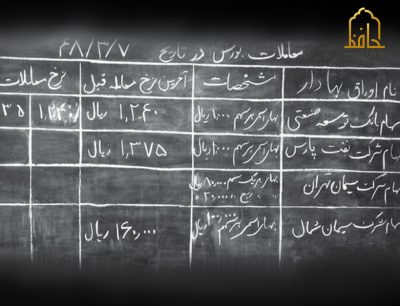 حافظ
معاملات بورس در تاریخ ۴۸/۳/۷
نام اوراق بهادار مشخصات آخرین نرخ معامله قبل نرخ معاملات
سهام بانک توسعه صنعتی بهای اسمی هر سهم ۱۰۰۰ ریال ۱,۲۴۰ ریال ۱,۲۴۰ ۳۵
سهام شرکت نفت پارس بهای اسمی هر سهم ۱۰۰۰ ریال ۱,۳۷۵ ریال
سهام شرکت سیمان تهران بهای هر یک سهم ۱۰,۰۰۰ ریال
سهام شرکت سیمان شمال بهای اسمی هر سهم ریال ۱۶۰,۰۰۰ ریال